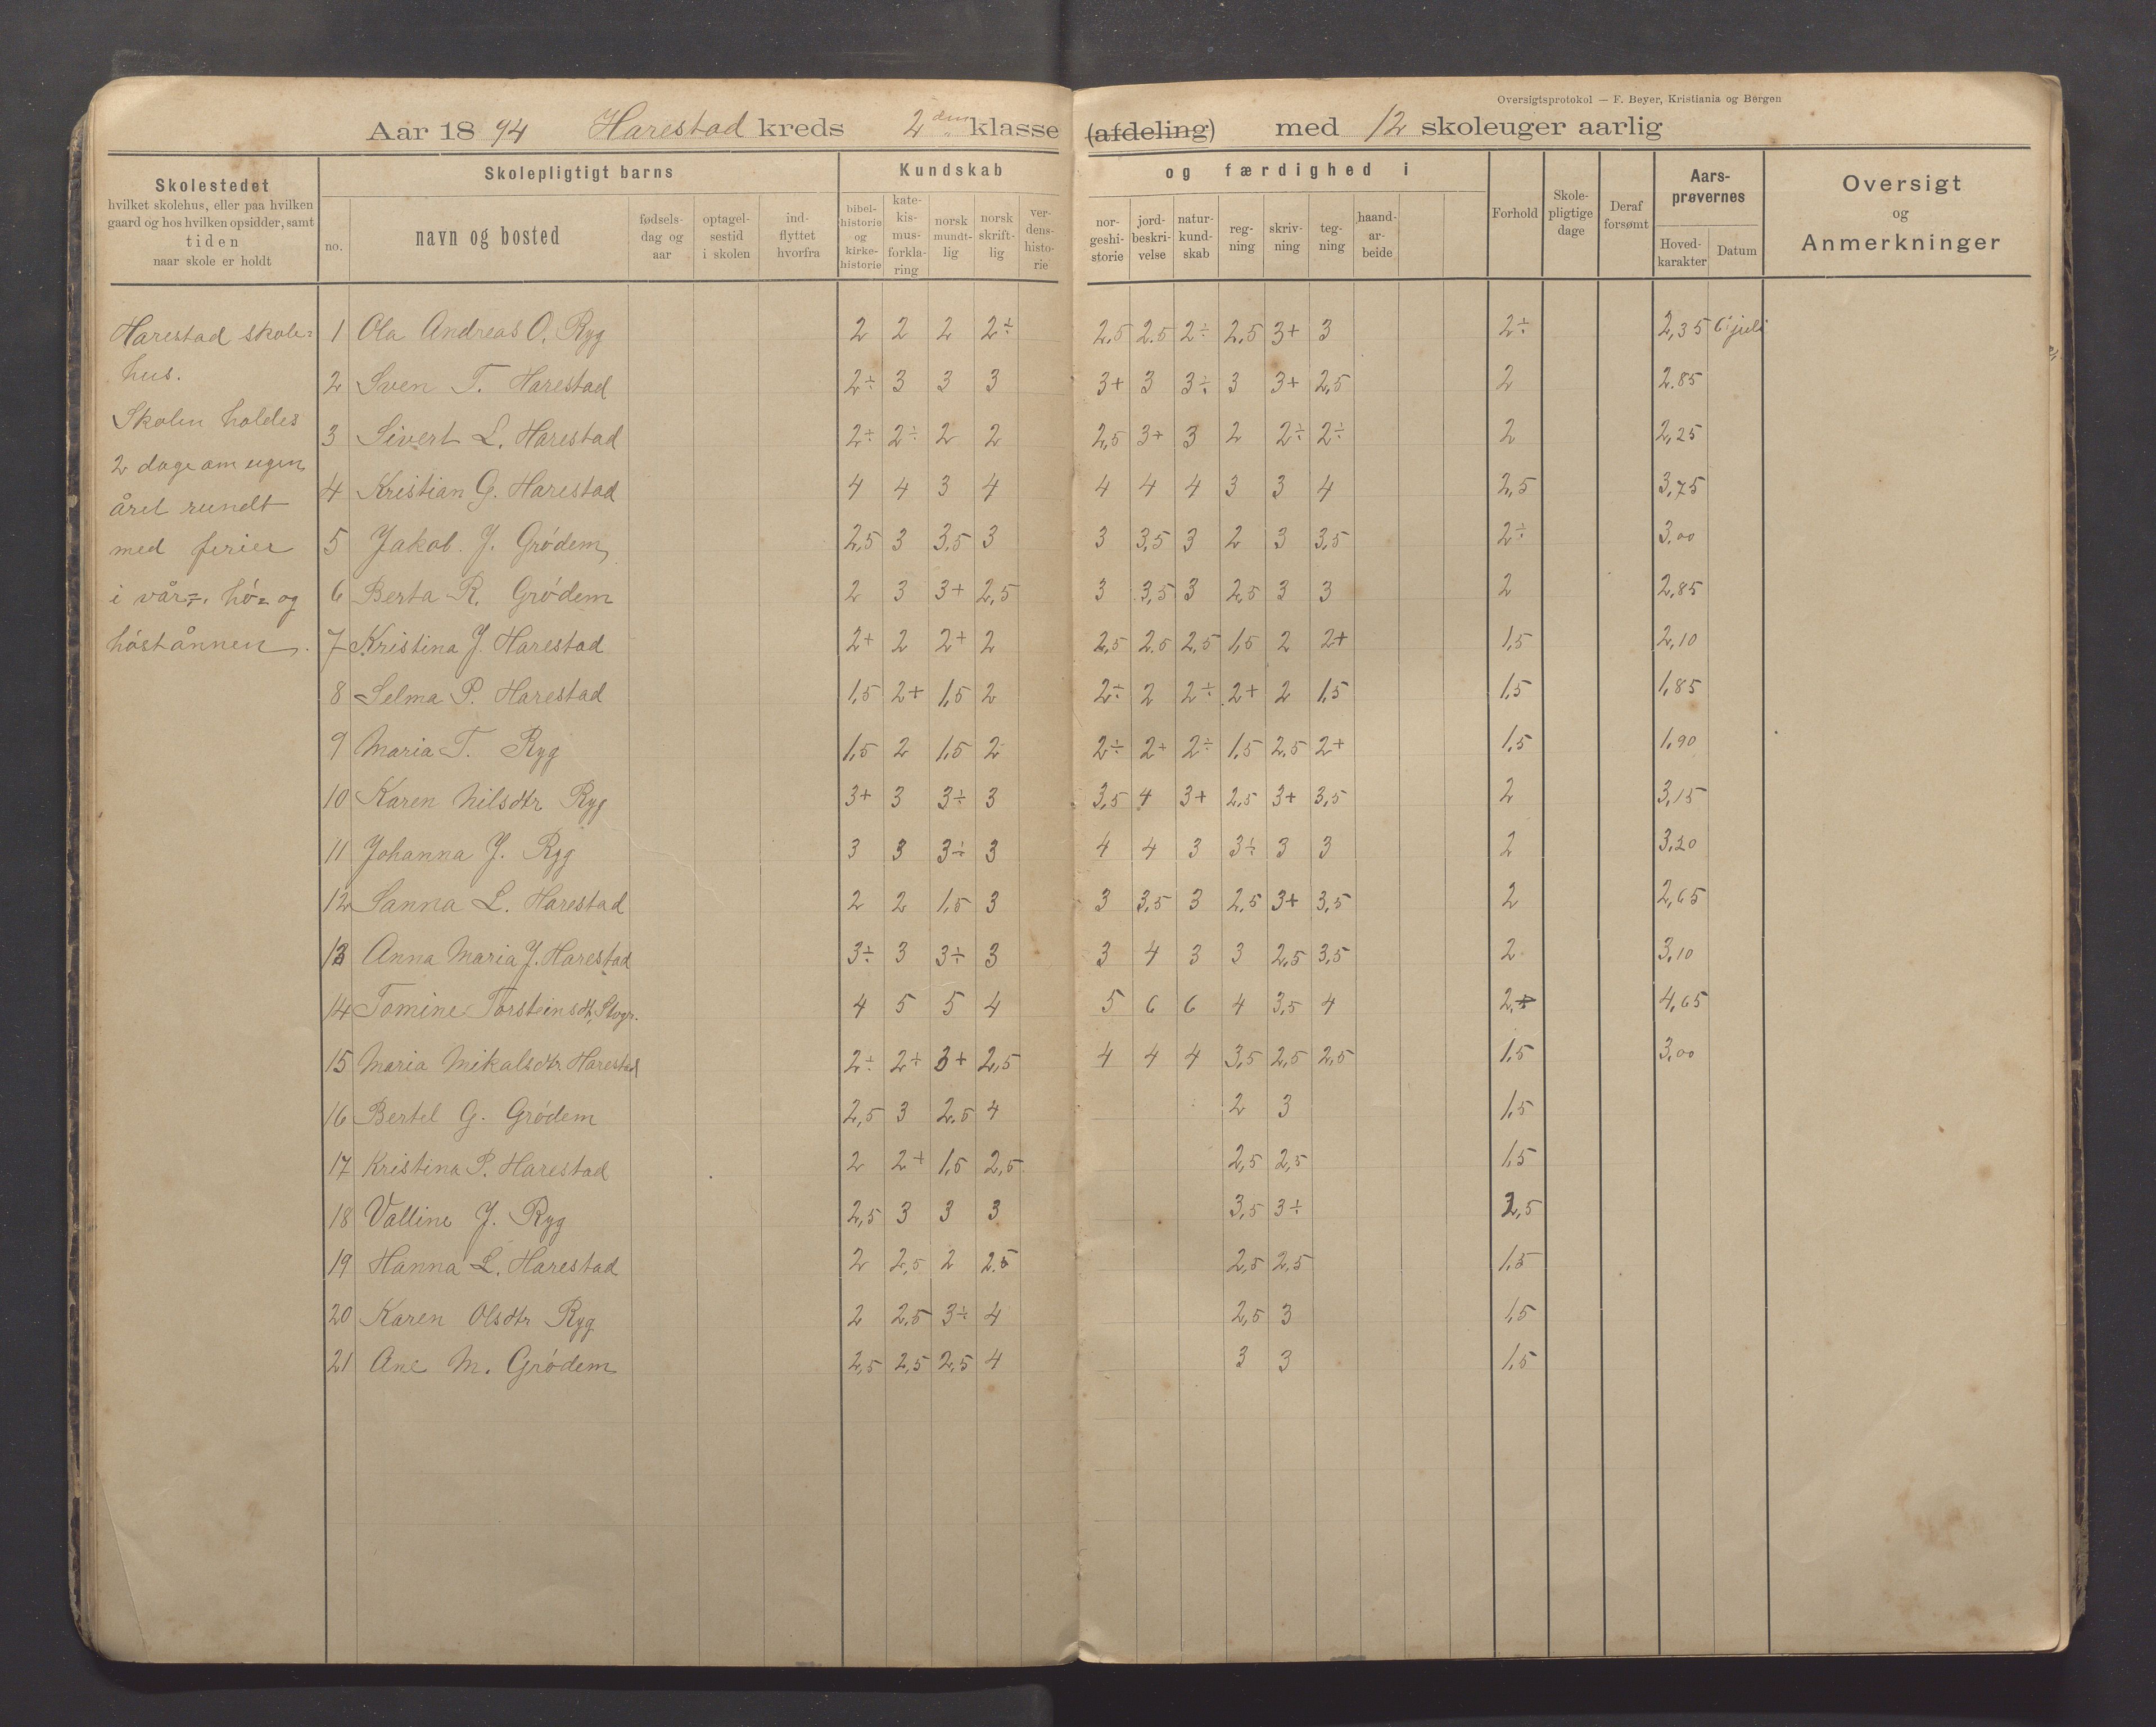 Oversigtsprotokol — F. Beyer, Kristiania og Bergen
Aar 1894 Harestad kreds 2den klasse (afdeling) med 12 skoleuger aarlig
Skolestedet
hvilket skolehus, eller paa hvilken
gaard og hos hvilken opsidder, samt
tiden
naar skole er holdt
Skolepligtigt barns
no.
navn og bosted
fødsels-
dag og
aar
optagel-
sestid
i skolen
ind-
flyttet
hvorfra
Kundskab
bibel-
historie
og
kirke-
historie
kate-
kis-
mus-
forkla-
ring
norsk
mundt-
lig
norsk
skrift-
lig
ver-
dens-
histo-
rie
og færdighed i
nor-
geshi-
storie
jord-
beskri-
velse
natur-
kund-
skab
reg-
ning
skriv-
ning
teg-
ning
haand-
ar-
beide
Forhold
Skole-
pligtige
dage
Deraf
forsømt
Aars-
prøvernes
Hoved-
karakter
Datum
Oversigt
og
Anmerkninger
Harestad skole-
hus.
Skolen holdes
2 dage om ugen
året rundt
med ferier
i vår-, hó- og
hóstånnen.
1 Ola Andreas O. Ryg 2 2 2 2÷ 2,5 2.5 2÷ 2,5 3+ 3 2÷ 2,35 6 juli
2 Sven T. Harestad 2÷ 3 3 3 3+ 3 3÷ 3 3+ 2,5 2 2.85
3 Sivert L. Harestad 2÷ 2÷ 2 2 2,5 3+ 3 2 2÷ 2÷ 2 2,25
4 Kristian G. Harestad 4 4 3 4 4 4 4 3 3 4 2,5 3,75
5 Jakob. J. Gródem 2,5 3 3,5 3 3 3,5 3 2 3 3,5 2÷ 3,00
6 Berta R. Gródem 2 3 3+ 2,5 3 3,5 3 2,5 3 3 2 2,85
7 Kristina J. Harestad 2+ 2 2+ 2 2,5 2.5 2,5 1,5 2 2+ 1,5 2,10
8 Selma P. Harestad 1,5 2+ 1,5 2 2÷ 2 2÷ 2+ 2 1,5 1,5 1,85
9 Maria T. Ryg 1,5 2 1,5 2 2÷ 2+ 2÷ 1,5 2,5 2+ 1,5 1,90
10 Karen Nilsdtr Ryg 3+ 3 3÷ 3 3,5 4 3+ 2,5 3+ 3,5 2 3,15
11 Johanna J. Ryg 3 3 3÷ 3 4 4 3 3÷ 3 3 2 3,20
12 Sanna L. Harestad 2 2 1,5 3 3 3,5 3 2,5 3+ 3,5 2 2,65
13 Anna Maria J. Harestad 3÷ 3 3÷ 3 3 4 3 3 2,5 3,5 2 3,10
14 Tomine Torsteinsdt. 4 5 5 4 5 6 6 4 3,5 4 2+ 4,65
15 Maria Mikalsdtr Harestad 2÷ 2÷ 3+ 2,5 4 4 4 3,5 2,5 2,5 1,5 3,00
16 Bertel G. Gródem 2,5 3 2,5 4 2 3 1,5
17 Kristina P. Harestad 2 2+ 1,5 2,5 2,5 2,5 1,5
18 Valline J. Ryg 2,5 3 3 3 3,5 3÷ 2,5
19 Hanna L. Harestad 2 2,5 2 2.5 2,5 2,5 1,5
20 Karen Olsdtr Ryg 2 2,5 3÷ 4 2,5 3 1,5
21 Ane M. Gródem 2,5 2,5 2,5 4 3 3 1,5